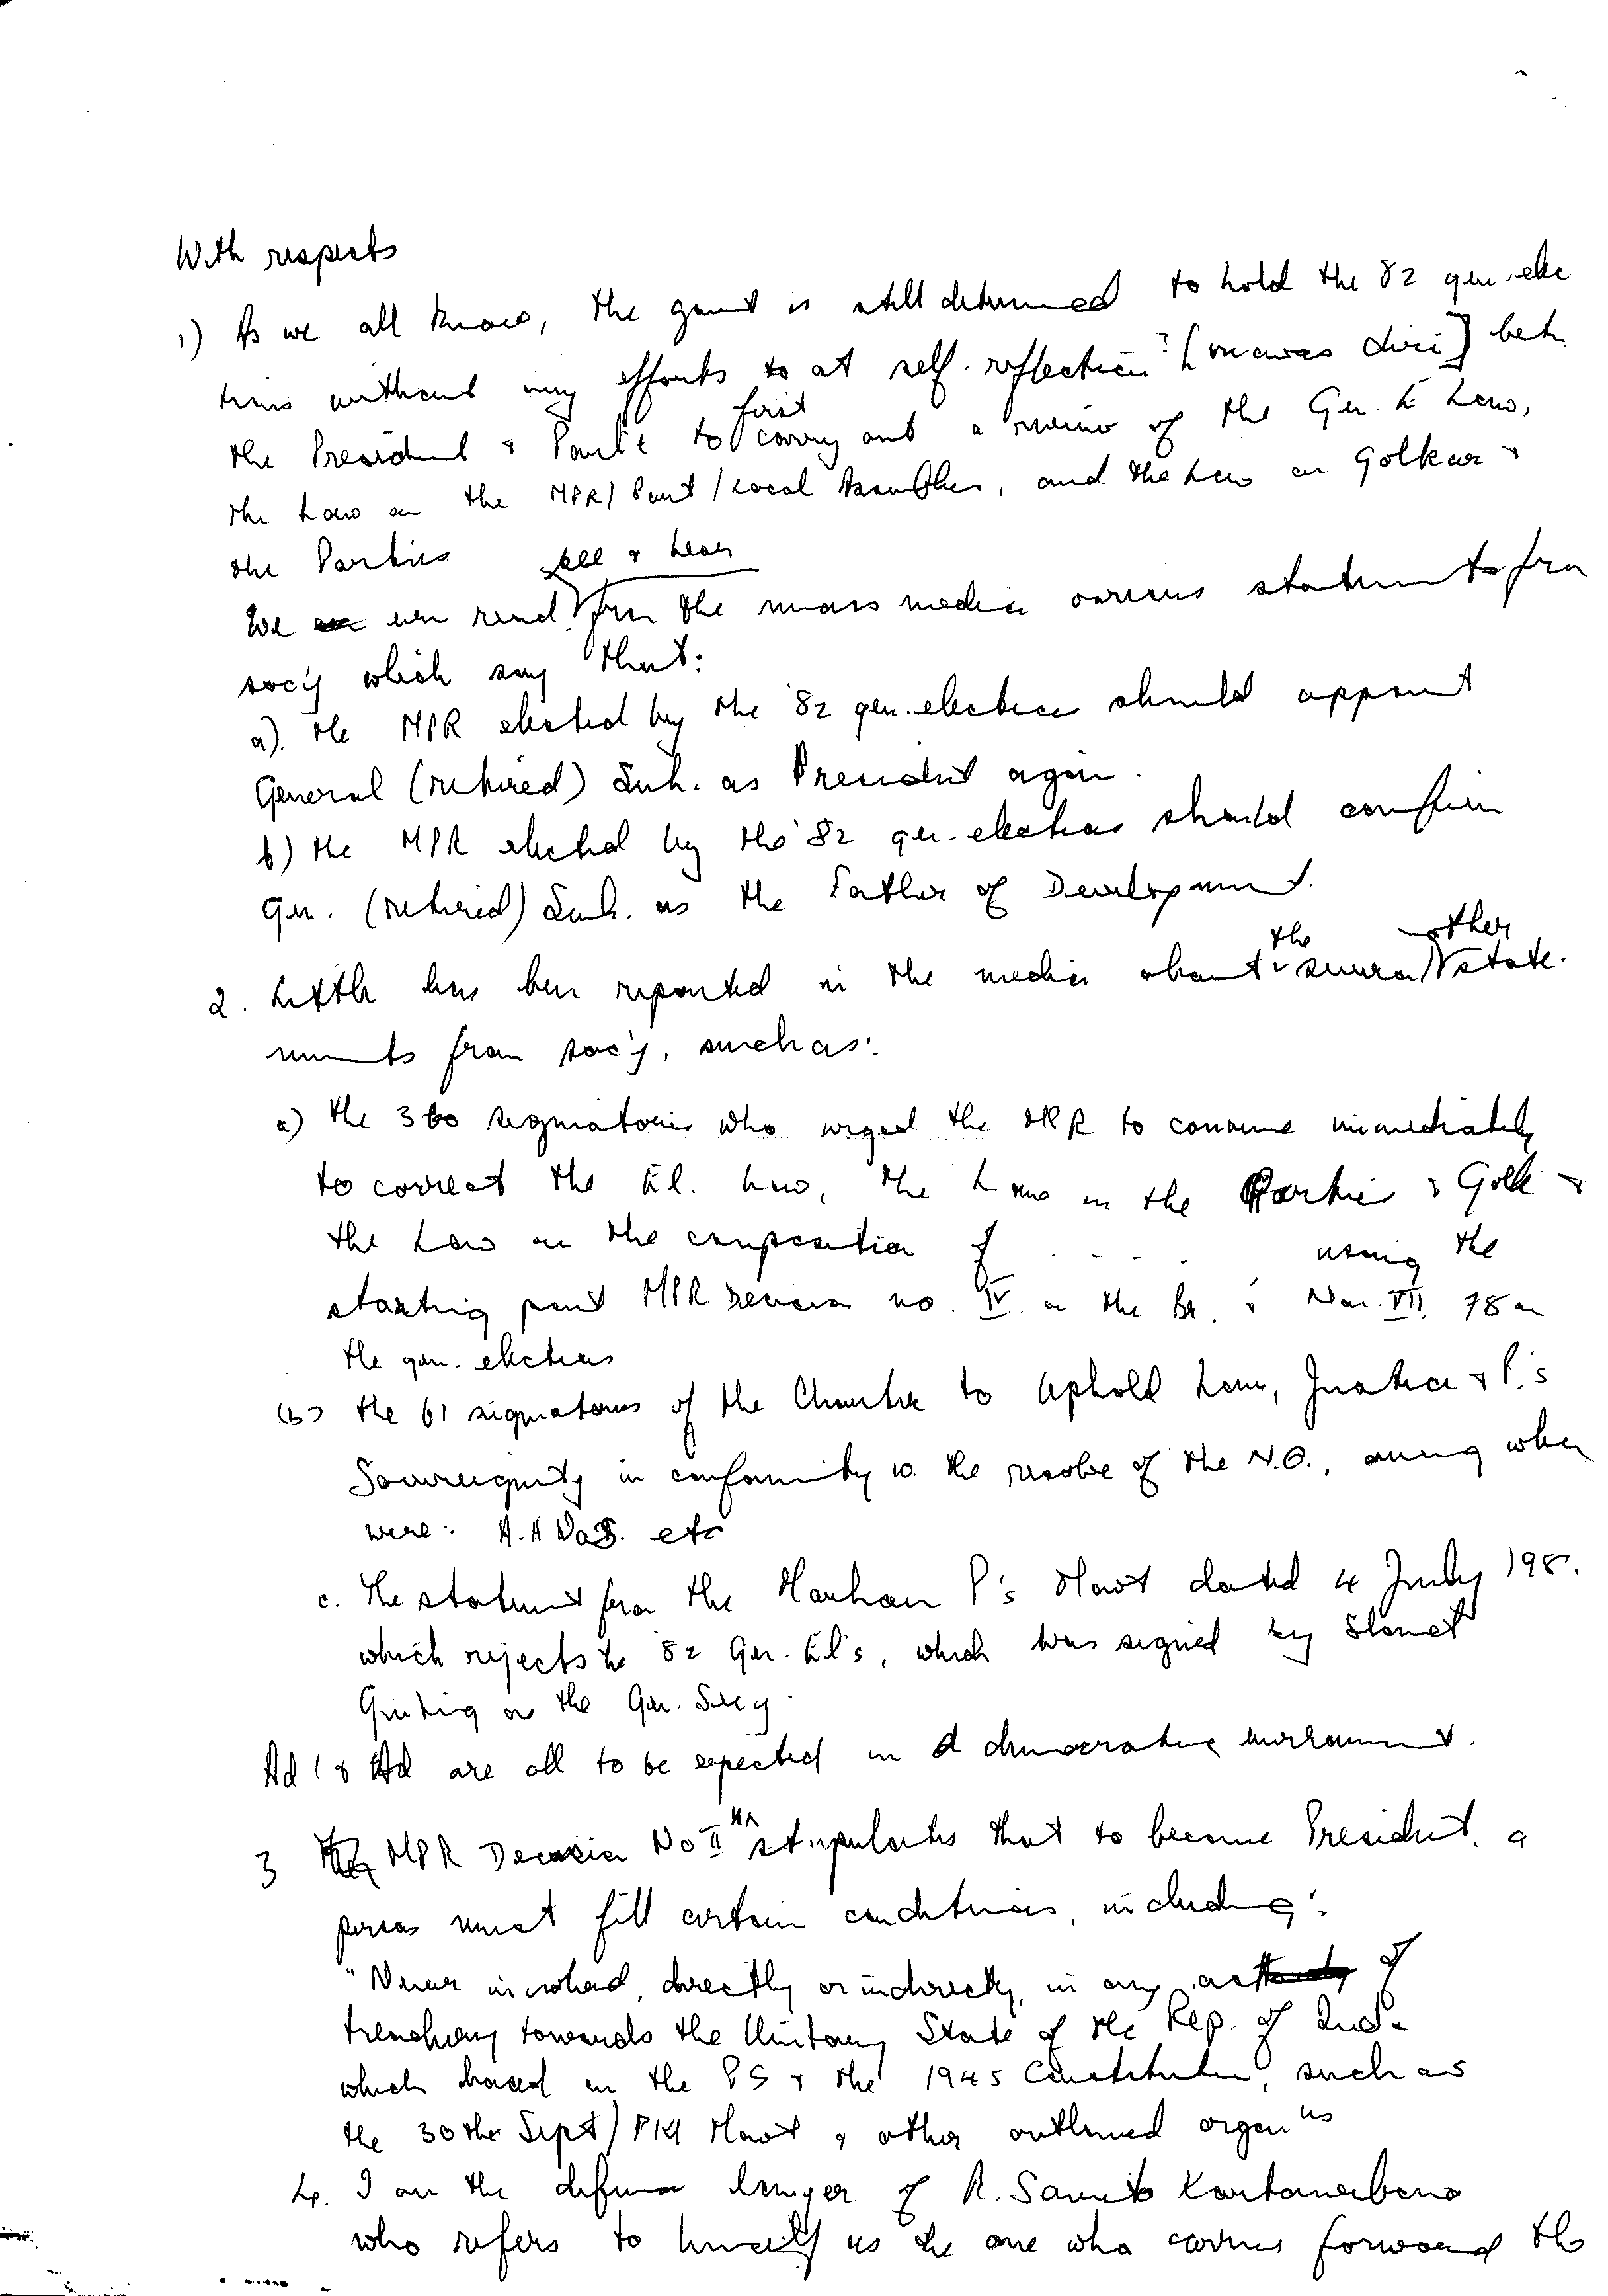 With respects
1) As we all know, the govt is still determined to hold the 82 gen. elec
tions without any efforts to at self. reflection? [mawas diri] bet.
the President & Parlt to first carry out a review of the Gen. E Laws,
the Law on the MPR/Parlt/Local Assemblies, and the Law on Golkar &
the Parties
We can read, see & hear from the mass media various statements from
soc'y which say that:
a). the MPR elected by the '82 gen. election should appoint
General (retired) Suh. as President again.
b) the MPR elected by the '82 gen. elections should confirm
Gen. (retired) Suh. as the Father of Development.
2. Little has been reported in the media about the several other state-
ments from soc'y, such as:
a) the 360 signatories who urged the MPR to convene immediately
to correct the El. Law, the Law on the Parties & Golk &
the Law on the composition of - - - - using the
starting point MPR Decision no. IV on the & VII, 78 on
the gen. elections
(b) the 61 signatories of the Charter to Uphold Law, Justice & P.'s
Sovereignty in conformity w. the resolve of the N.O., among whom
were: A.H Nas. etc
c. The statement from the Marhaen P's Mov't dated 4 July 198.
which rejects the 82 Gen. El's, which was signed by Slamet
Ginting as the Gen. Sec'y.
Ad 1 & Ad are all to be expected in a democratic environment.
3 MPR Decision No II stipulates that to become President, a
person must fill certain conditions, including:
"Never involved, directly or indirectly, in any act of
treachery towards the Unitary State of the Rep. of Ind.
which based on the PS & the 1945 Constitution, such as
the 30th Sept/PKI Mov't & other outlawed organ'ns
4. I am the defence lawyer of R. Sawito Kartowibowo
who refers to himself as the one who carries forward the